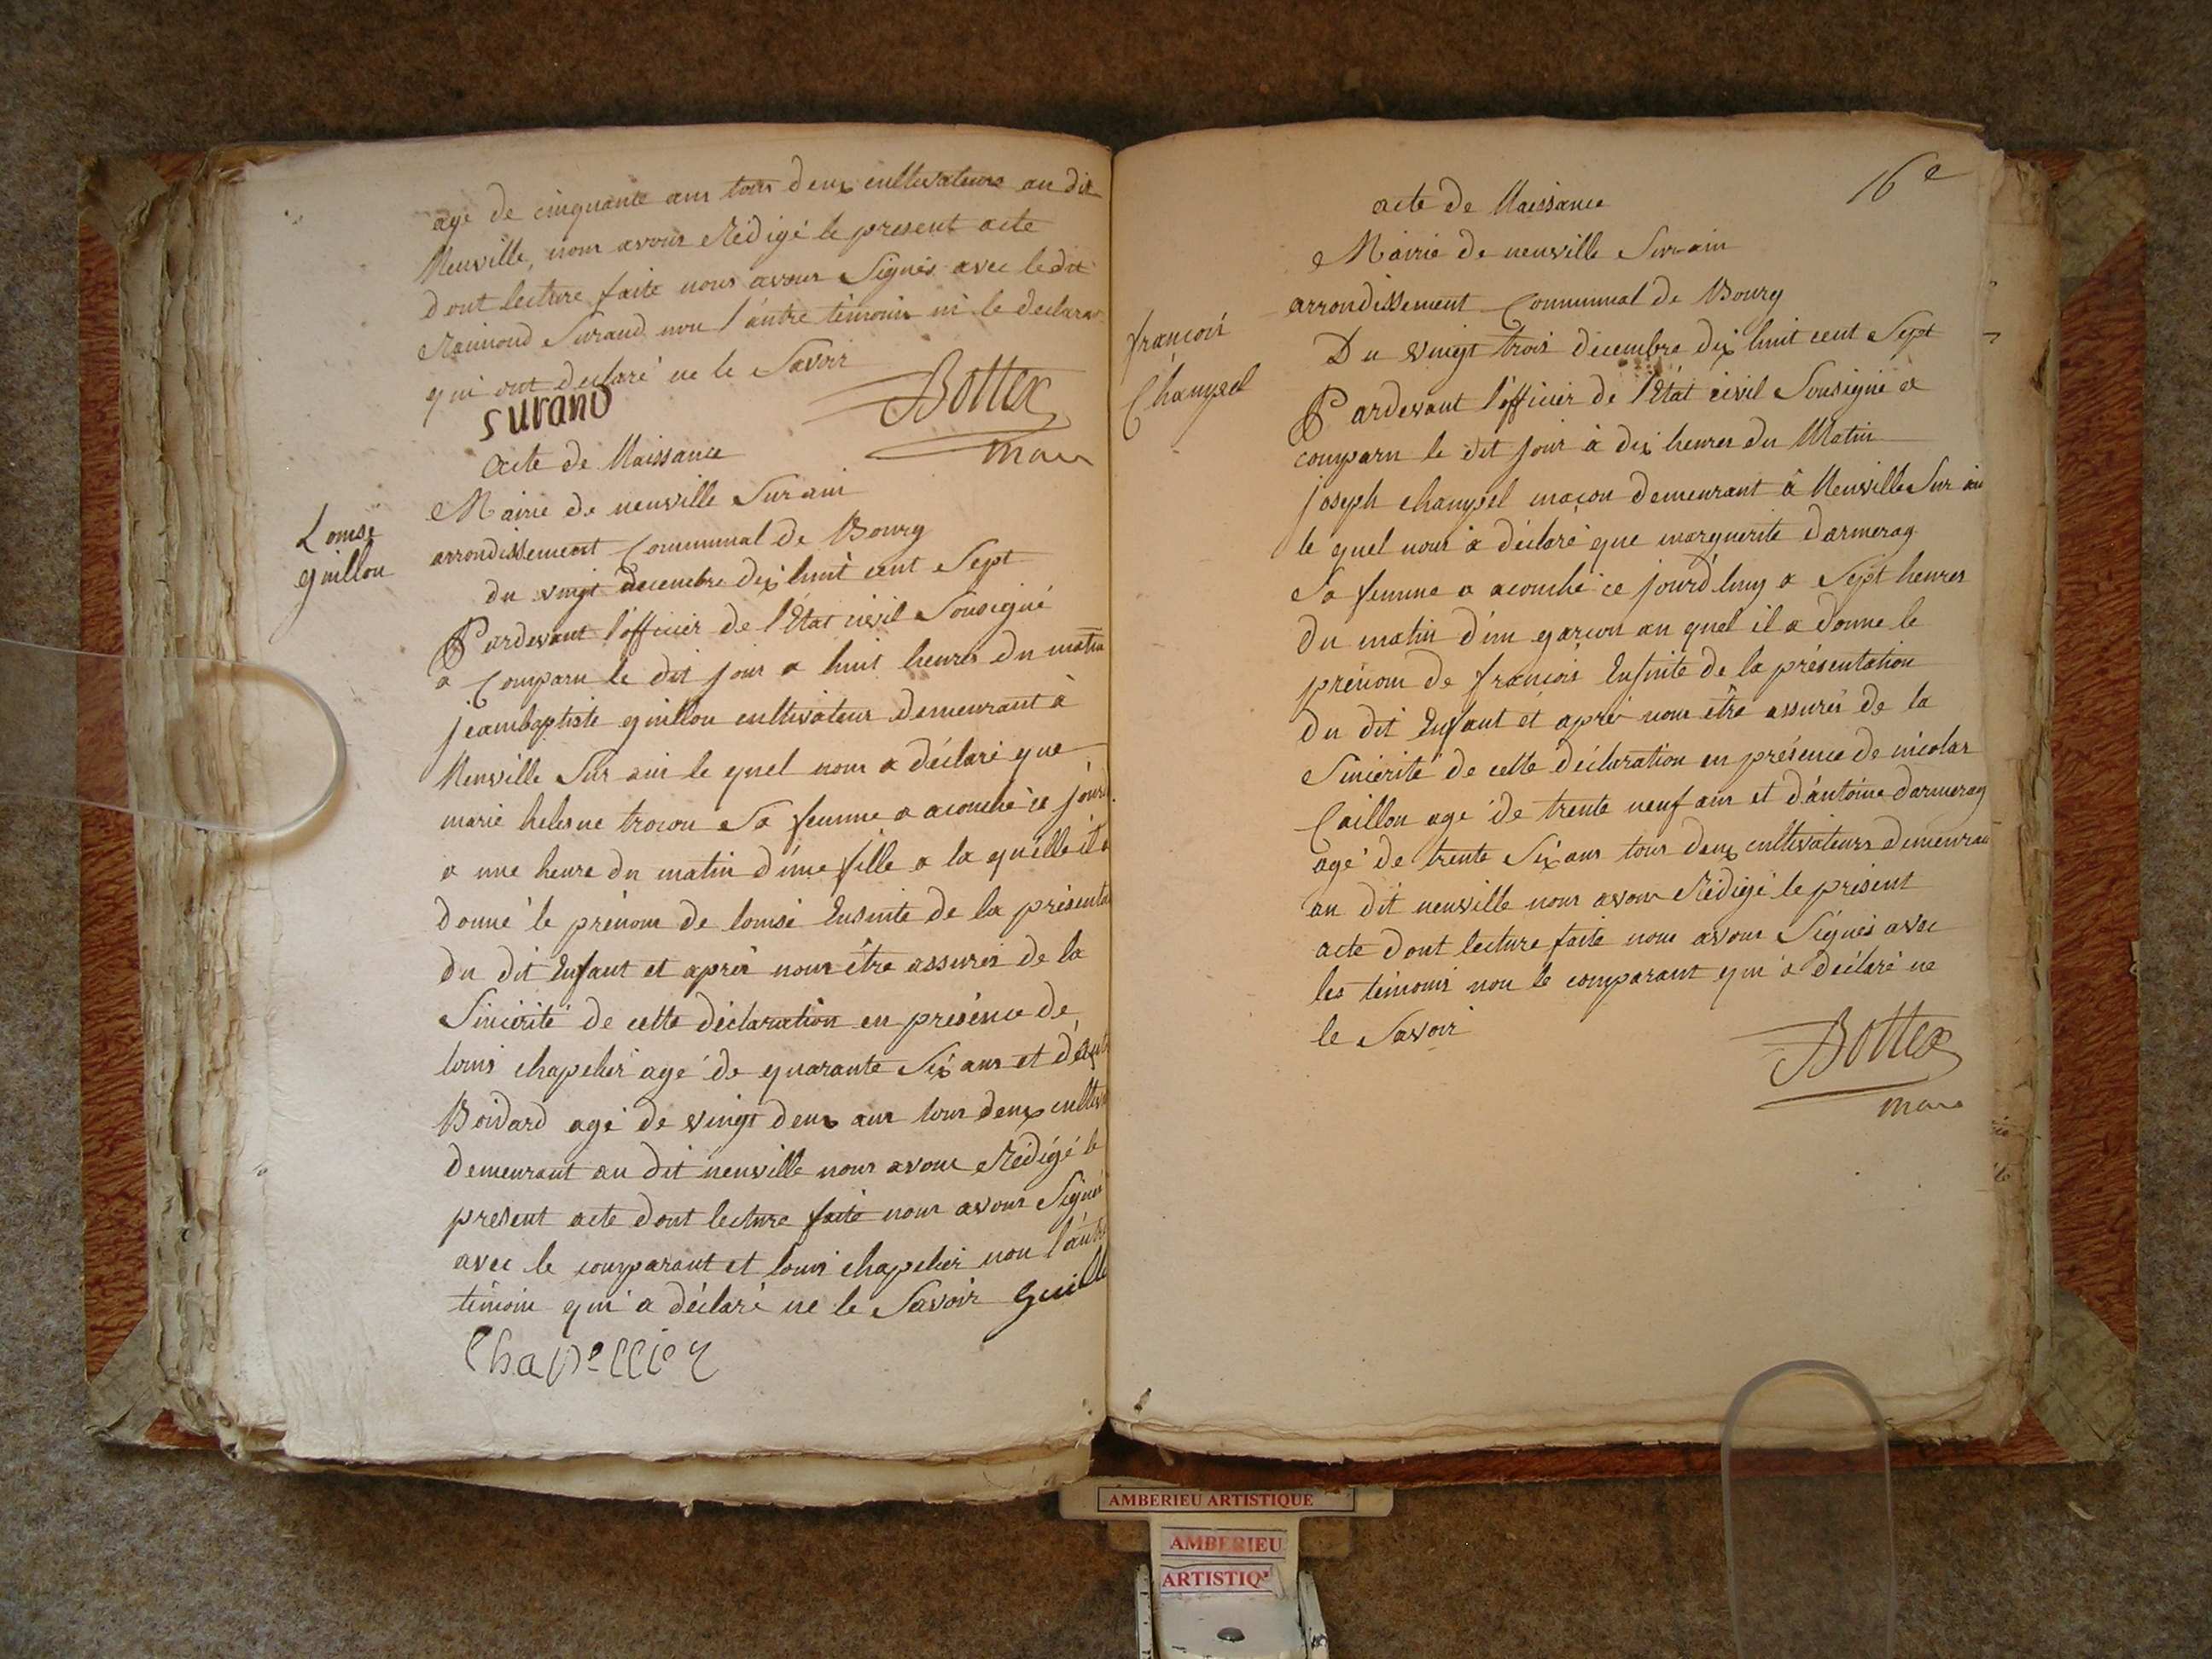 agé de cinquante ans tous deux cultivateurs au dit
Neuville, nous avons Rédigé le present acte
dont lecture faite nous avons Signés avec le dit
Raimond Surand non l'autre témoin ni le declarant
qui ont declaré ne le Savoir
surand
Bottex
maire
acte de Naissance
Mairie de neuville Sur ain
Louise
guillon
arrondissement Communal de Bourg
du vingt decembre dix huit cent Sept
Pardevant l'officier de l'Etat civil Sousigné
a Comparu le dit jour a huit heures du matin
jeanbaptiste guillon cultivateur demeurant à
Neuville Sur ain le quel nous a déclaré que
marie helesne trocon Sa femme a acouché ce jourd
a une heure du matin d'une fille a la quelle il a
donné le prénom de louise Ensuite de la présenta
du dit Enfant et après nous être assurés de la
Sincérité de cette déclaration en présence de
louis chapelier agé de quarante Six ans et
Boidard agé de vingt deux ans tous deux cultiv
demeurant au dit neuville nous avons Rédigé le
présent acte dont lecture faite nous avons Signé
avec le comparant et louis chapelier non l'autre
témoin qui a déclaré ne le Savoir Guill
Chapellier
16e
acte de Naissance
Mairie de neuville Sur ain
arrondissement Communal de Bourg
françois
Du vingt trois decembre dix huit cent Sept
Pardevant l'officier de l'Etat civil Sousigné a
comparu le dit jour à dix heures du Matin
joseph champel maçon demeurant à Neuville Sur ain
le quel nous a déclaré que marguerite darmerag
Sa femme a acouché ce jourd'huy a Sept heures
du matin d'un garçon au quel il a donné le
prénom de françois Ensuite de la présentation
du dit Enfant et après nous être assurés de la
Sincérité de cette déclaration en présence de nicolas
Caillon agé de trente neuf ans et d'antoine darmerag
agé de trente Six ans tous deux cultivateurs demeurant
au dit neuville nous avons Rédigé le présent
acte dont lecture faite nous avons Signés avec
les témoins non le comparant qui a déclaré ne
le Savoir
Bottex
maire
AMBERIEU ARTISTIQUE
AMBERIEU
ARTISTIQ